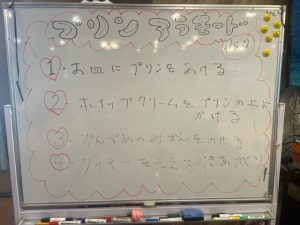 プリンアラモード
1. お皿にプリンをあける
2. ホイップクリームをプリンの上に
かける
3. かんづめのみかんをのせる
4. クッキーをそえてできあがり